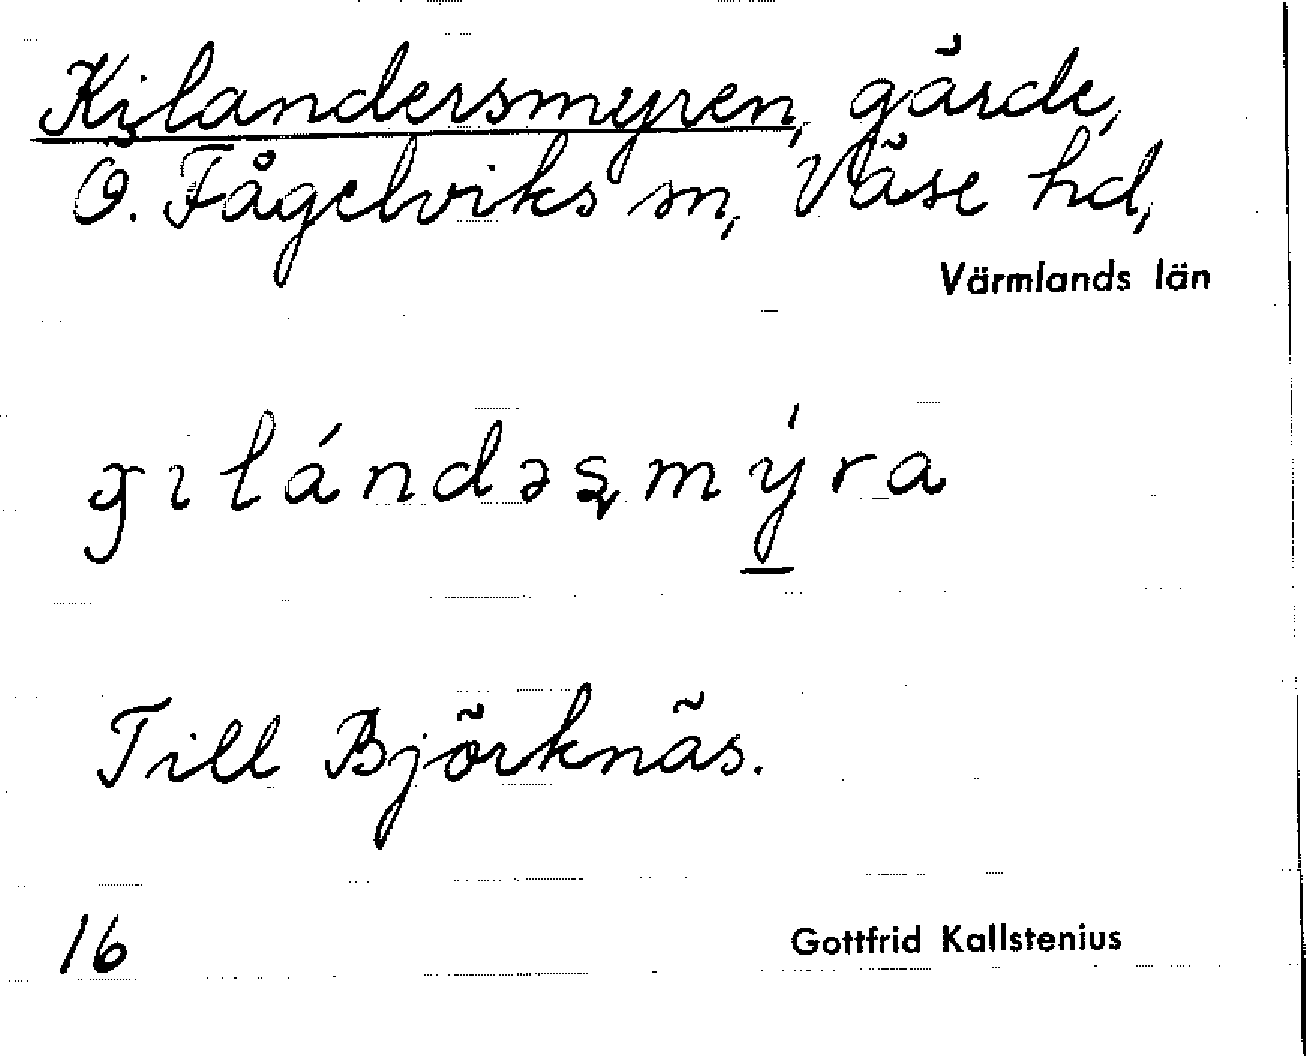 Kilandersmyren, gärde,
Ö. Fågelviks sn, Väse hd,
Värmlands län
gılándəʂmýra
Till Björknäs.
16
Gottfrid Kallstenius